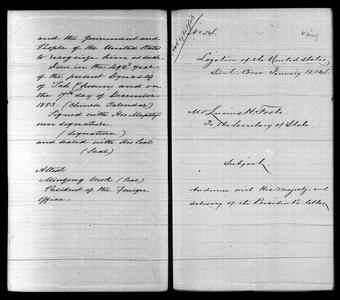 and the Government and
People of the United States
to recognize him as such.
Done in the 492d year
of the present Dynasty
of Tah Chosun and on
the 9th day of December
1883. (Chinese Calendar)
Signed with His Majesty's
own signature.
(Signature)
and sealed with His Seal
(Seal)
Attest
President of the Foreign
office.
Legation of the United States,
Mr Lucius H. Foote
To the Secretary of State
Subject.
Audience with His Majesty and
delivery of the President's letter